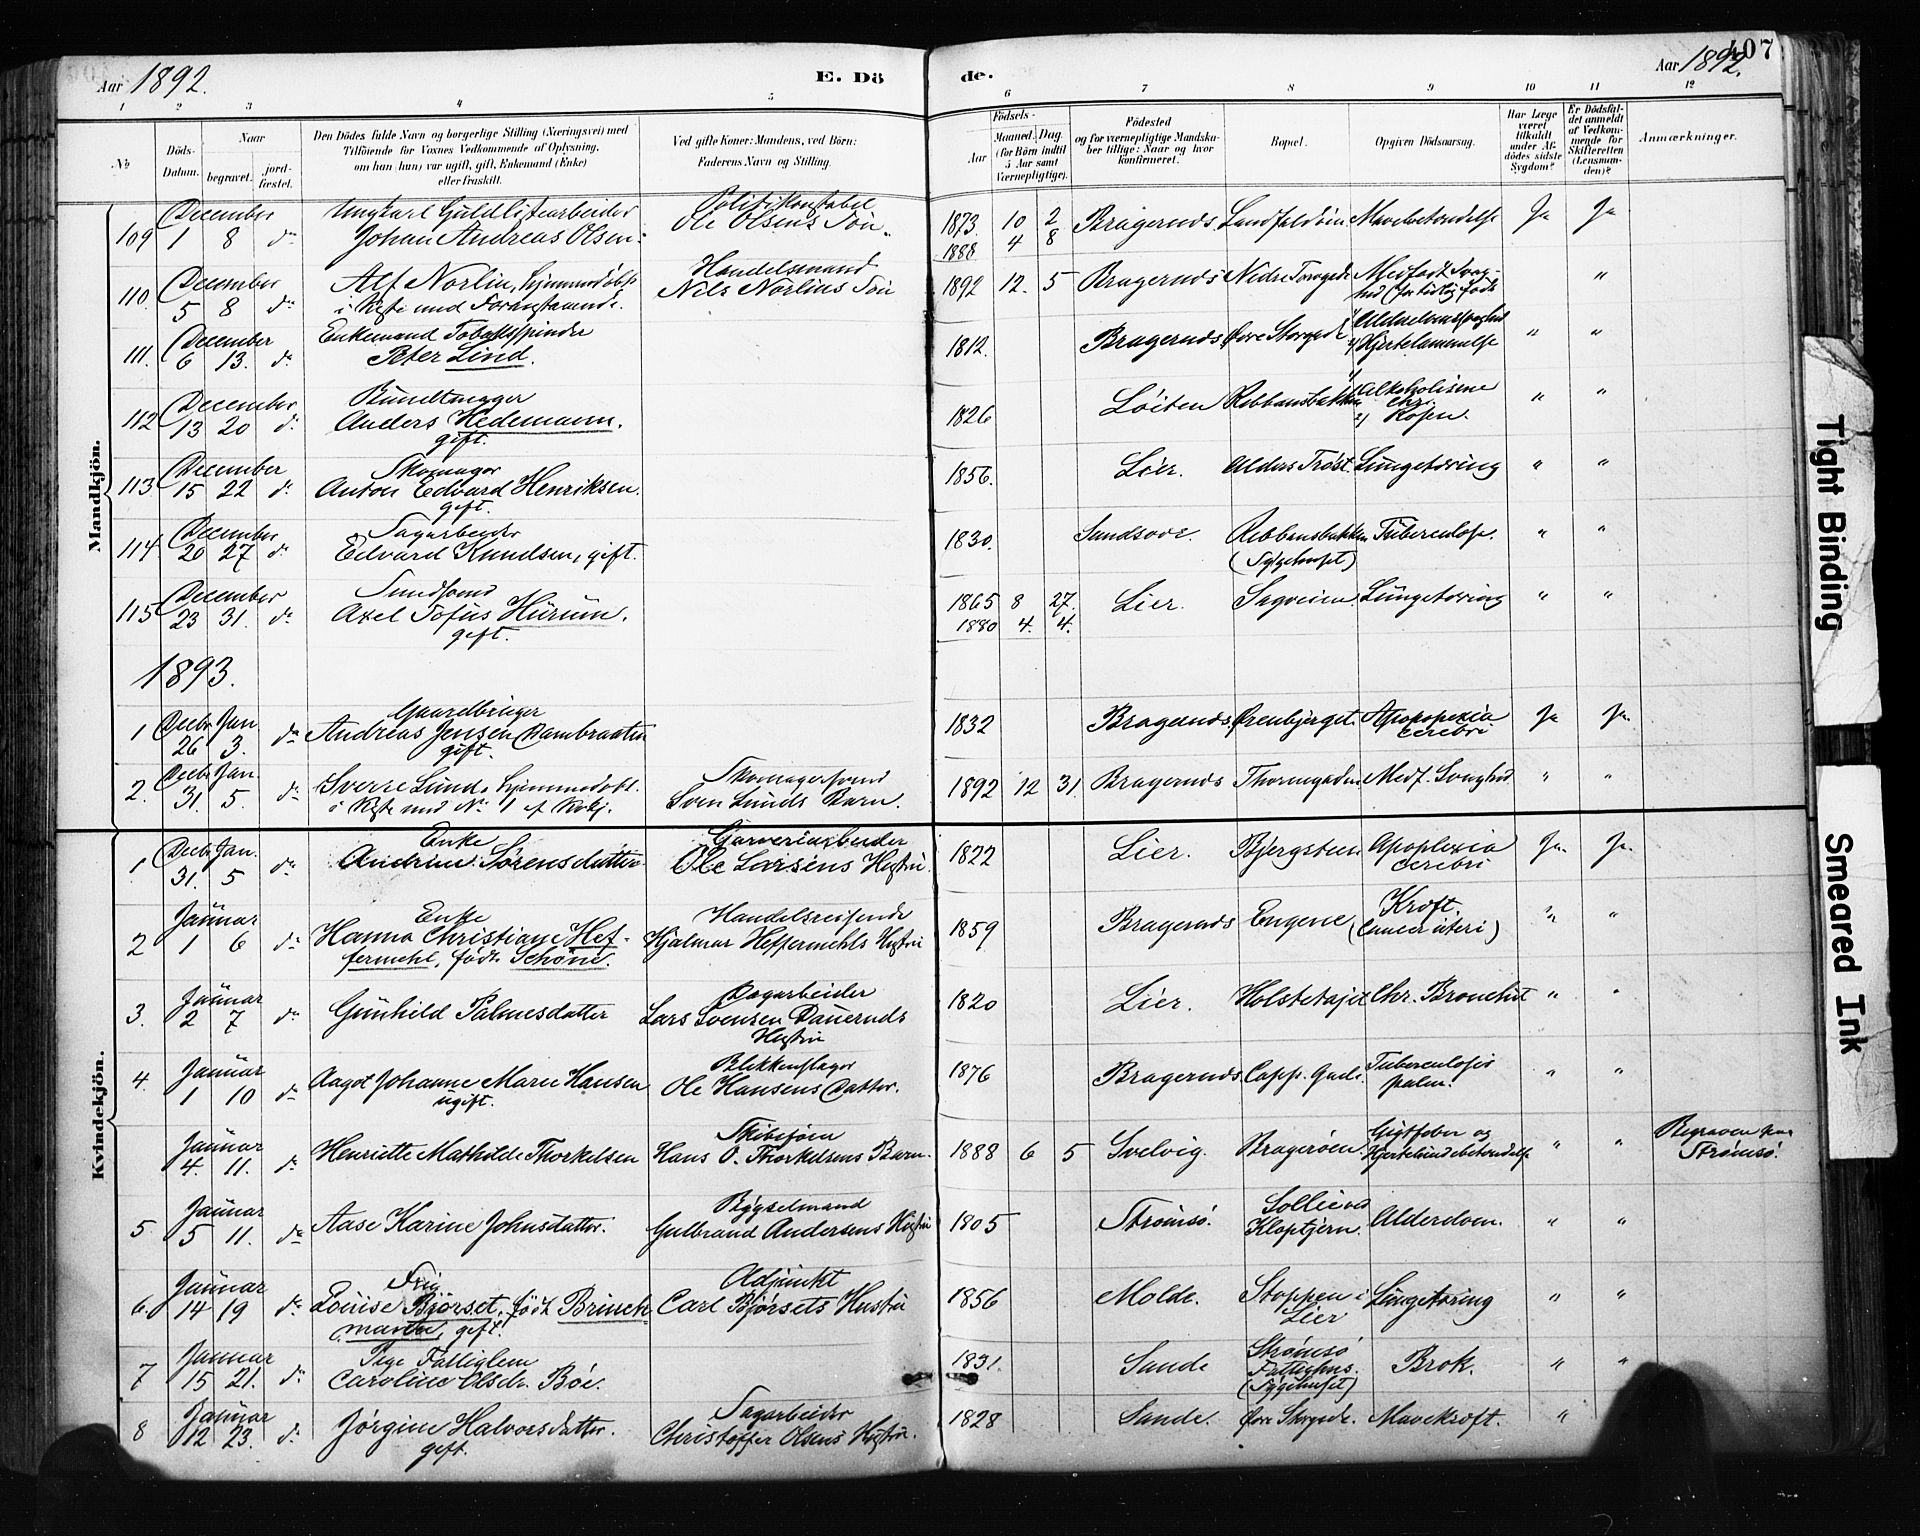 Aar 1892. E. Döde. Aar 1892. 407
1 2 3 4 5 6 7 8 9 10 11 12
No
Döds-Datum.
Naar
begravet.
jord-fæstet.
Den Dödes fulde Navn og borgerlige Stilling (Næringsvei) med
Tilföiende for Voxnes Vedkommende af Oplysning,
om han (hun) var ugift, gift, Enkemand (Enke)
eller fraskilt.
Ved gifte Koner: Mandens, ved Börn:
Faderens Navn og Stilling.
Födsels-
Aar
Maaned. Dag.
(for Börn indtil
5 Aar samt
Værnepligtige).
Födested
og for værnepligtige Mandska-
ber tillige: Naar og hvor
konfirmeret.
Bopæl.
Opgiven Dödsaarsag.
Har Læge
været
tilkaldt
under Af-
dödes sidste
Sygdom?
Er Dödsfal-
det anmeldt
af Vedkom-
mende for
Skifteretten
(Lensman-
den)?
Anmærkninger.
Mandkjön.
December Ungkarl Guldlistearbeider Politikonstabel
109 1 8 do Johan Andreas Olsen. Ole Olsens Søn. 1873 10 2 Bragernæs. Landfaldøen Mavebetændelse Ja Ja
1888 4 8
December Alf Norlin, hjemmedøbt Handelsmand
110. 5 8 do i Kiste med Foranstaaende. Nils Norlins Søn 1892 12. 5 Bragernæs Nedre Torvgade Medfødt Svag-
hed (for tidlig født "
December Enkemand Tobakspinder
111. 6 13. do Peter Lind. 1812. Bragernæs Øvre Storgade Alderdomssvaghed
2) Hjertelammelse " "
December Bundtmager
112 13 20 do Anders Hedemann. 1826 Løiten Ribbansbakken 1) Alkoholisme
gift. chr.
2) Rosen. " "
December Skomager
113 15 22 do Anton Edvard Henriksen. 1856. Lier. Alders Trøst. Lungetæring " "
gift.
December Sagarbeider
114 20 27 do Edvard Knudsen, gift. 1830. Sandsvær. Ribbansbakken Tuberculose. " "
(Sygehuset)
December
115 23 31. do Axel Tofus Hurum. 1865 8 27. Lier. Sagveien Lungetæring " "
gift. 1880 4. 4.
1893.
Decbr Jan Gaardbruger
1 26 3. do Andreas Jensen Dambraaten 1832 Bragernæs. Ørenbjerget. Apopopexia
gift. cerebri Ja Ja.
Decbr Jan. Sverre Lund, hjemmedøbt. Skomagersvend
2. 31. 5. do i Kiste med No 1 af Kvkj. Sven Lunds Barn. 1892 12 31. Bragernæs Thornegaden Medf. Svaghed " "
Kvindekjön.
Decbr Jan. Enke Garveriarbeider
1 31. 5 do Andrine Sørensdatter Ole Larsens Hustru. 1822 Lier. Bjergsteen Apoplexia
cerebri Ja. Ja.
Januar Enke Handelsreisende
2 1 6 do Hanna Christiane Hef- Hjalmar Heffermehls Hustru 1859 Bragernæs Engene Kræft.
fermehl, født Schöne. (Cancer uteri) " "
Januar Dagarbeider
3. 2 7 do Gunhild Palmesdatter Lars Svensen Dauernds 1820 Lier. Holstetajet Chr. Bronchit " "
Hustru
Januar Blikkenslager
4. 1 10 do Aagot Johanne Marie Hansen Ole Hansens Datter. 1876 Bragernæs Capp. Gade. Tuberculosis
ugift. pulm. " "
Januar Skibstøm Gigtfeber og Begraven paa
4. 11. do Henriette Mathilde Thorkelsen Hans O. Thorkelsens Barn. 1888 6 5 Svelvig. Bragerøen. Hjertehindebetændelse " " Strømsø.
Januar Bygselmand
5. 5 11. do Aase Karine Johnsdatter. Gulbrand Andersens Hustru 1805 Strømsø. Sollie ved
Kloptjern. Alderdom. " "
Januar Fru Adjunkt
6. 14 19 do Louise Bjørset, født Brinch- Carl Bjørsets Hustru 1856 Molde. Stoppen i
mann, gift. Lier Lungetæring " "
Januar Pige Fattiglem
7 15 21. do Caroline Olsdr. Bøe. 1831. Sande Strømsø
Fattighus.
(Sygehuset) Brok. " "
Januar Sagarbeider
8 12 23. do Jørgine Halvorsdatter. Christoffer Olsens Hustru. 1828 Sande. Øvre Storgade. Mavekræft. "
gift.
Tight Binding
Smeared Ink